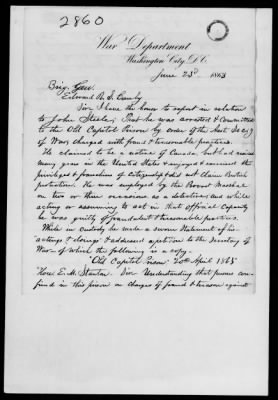 2860
War Department
Washington City, D.C.
June 23d 1863
Brig. Genl.
Edward R. S. Canby
Sir I have the honor to report in relation
to John Steele; That he was arrested & committed
to the Old Capitol Prison by order of the Asst Secy
of War charged with fraud & treasonable practices.
He claimed to be a native of Canada, but had resided
many years in the United States & enjoyed & exercised the
privileges & franchises of citizenship & did not claim British
protection. He was employed by the Provost Marshal
on two or three occasions as a detective and while
acting or assuming to act in that official capacity
he was guilty of fraudulent & treasonable practices.
While in custody he made a sworn statement of his
"actings & doings" & addressed a petition to the Secretary of
War of which the following is a copy.
"Old Capitol Prison 20th April 1863
"Hon. E. M. Stanton. Sir Understanding that persons con-
fined in this prison on charges of fraud & treason against